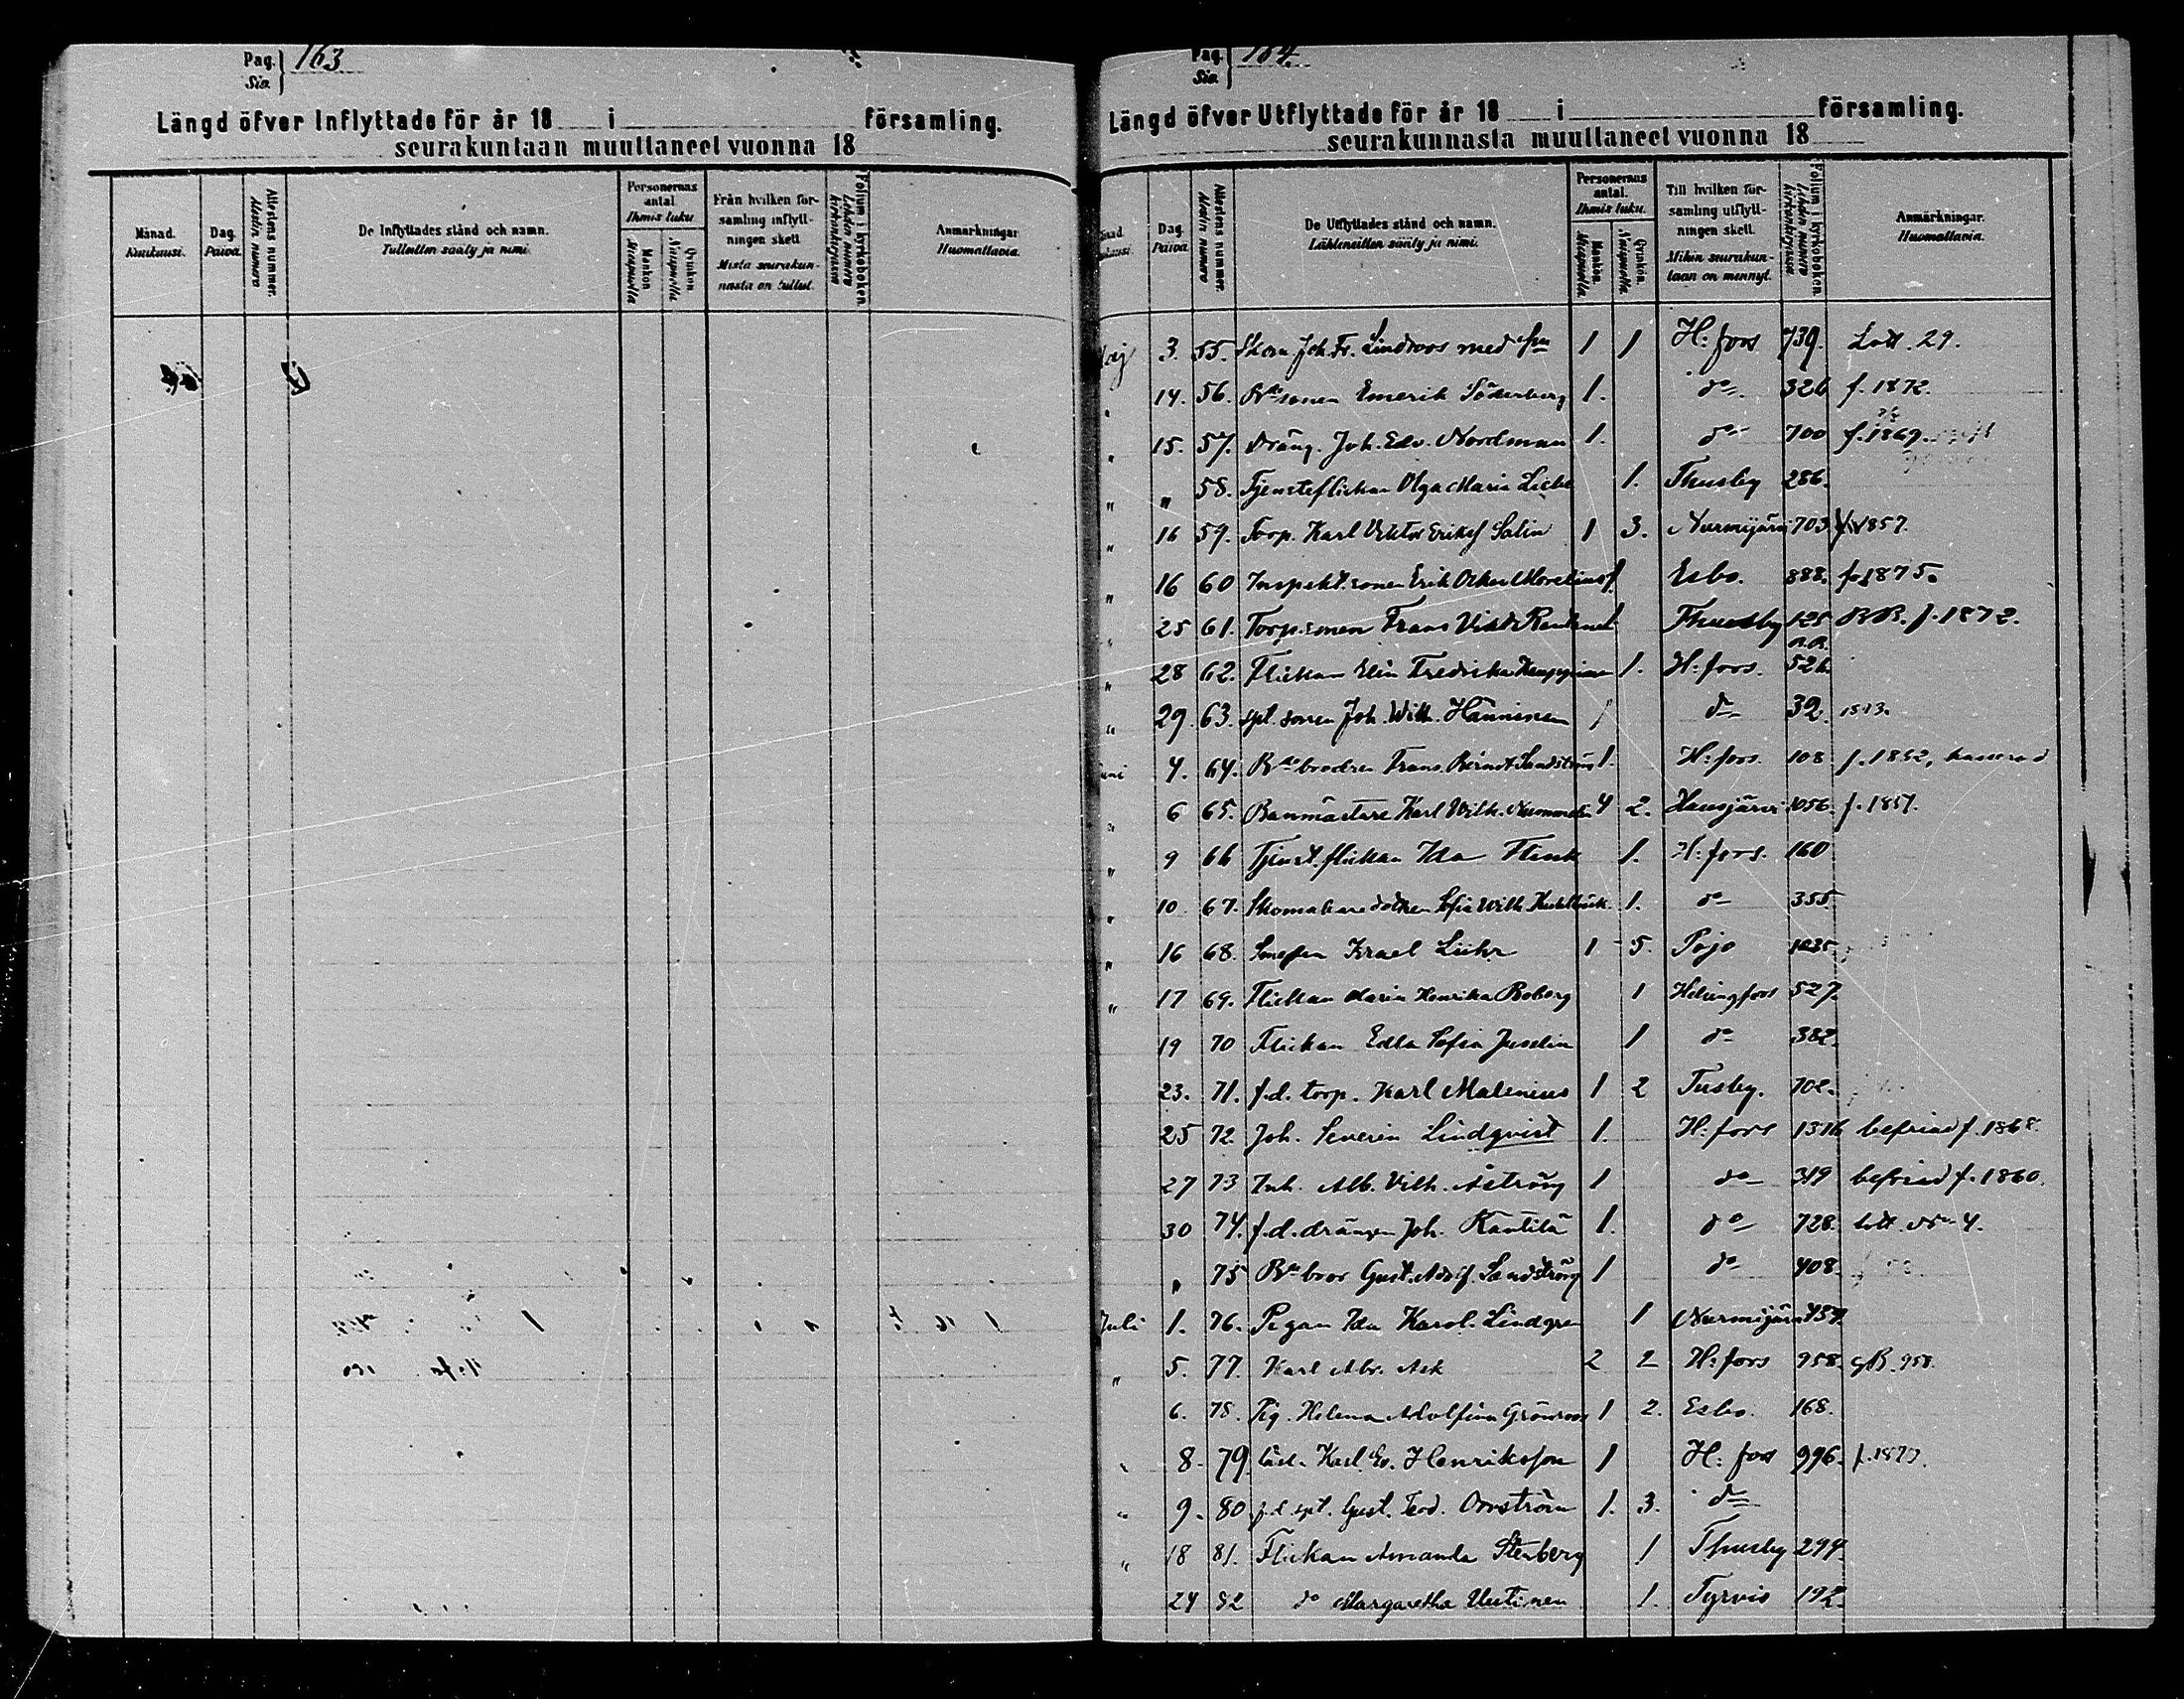 Pag. Siv. 163
Längd öfver Inflyttade för år 18 i församling.
seurakuntaan muuttaneet vuonna 18
Månad. Kuukausi.
Dag. Päivä.
Attestens nummer. Atestin numero
De Inflyttades stånd och namn. Tulletten sääty ja nimi.
Personernas antal Ihmis luku
Mankön Miespuolia
Qvinkön Naispuolia
Från hvilken församling inflyttningen skett Mistä seurakunnasta on tullut.
Folium i kyrkoboken. Lehden numero kirkonkirjassa
Anmärkningar Huomattavia.
Pag. Siv. 164
Längd öfver Utflyttade för år 18 i församling.
seurakunnasta muuttaneet vuonna 18
Dag. Päivä.
Attestens nummer. Atestin numero
De Utflyttades stånd och namn. Lähteneitten sääty ja nimi.
Personernas antal. Ihmis luku.
Mankön. Miespuolia.
Qvinkön. Naispuolia.
Till hvilken församling utflyttningen skett. Mihin seurakuntaan on mennyt.
Folium i kyrkoboken. Lehden numero kirkonkirjassa
Anmärkningar. Huomattavia.
Maj 3. 55. Joh. Fr. Lindroos med 1 1 H:fors 739. Lott. 29.
" 14. 56. sonen Emerik Söderberg 1. do 326 f. 1872.
" 15. 57. Dräng. Joh. Edv. Nordman 1. do 700 f. 1869.
" " 58. Tjensteflickan Olga Maria 1. Thusby 286.
" 16 59. Torp. Karl Viktor Salin 1 3. Nurmijärvi 703 1857.
" 16 60 Inspekt. sonen Erik 1. Esbo. 888. f. 1875.
" 25 61. Torp. sonen Frans Vikt. 1 Thusby 125 f. 1872.
" 28 62. Flickan Elin Fredrika 1. H:fors. 526.
" 29. 63. spt. sonen Joh. Wilh. Hänninen 1 do 39.
Juni 4. 64. brodren Frans Berndt Sandström 1. H:fors. 108 f. 1852, kasserad
" 6 65. Banmästare Karl Wilh. 4 2. Hausjärvi 1056. f. 1857.
" 9 66 Tjenst. flickan Ida Flink 1. H:fors. 160
" 10. 67. Skomakaredottren Sofia Wilh. 1. do 355.
" 16 68. Smeden Israel Lühr 1 5. Pojo 1035.
" 17 69. Flickan Maria Henrika Boberg 1 Helsingfors 527.
19 70 Flickan Edla Sofia Juselin 1 do 382.
23. 71. f.d. torp. Karl Malenius 1 2 Tusby. 702.
25 72. Joh. Severin Lindqvist 1. H:fors 1376 befriad f. 1868.
27 73 Inh. Alb. Vilh. Åström 1 do 319 befriad f. 1860.
30 74. f.d. drängen Joh. Kantilä 1. do 728. lott. No 4.
" 75 bror Gust. Adolf Sandström 1 do 408.
Juli 1. 76. Pigan Ida Karol. Lindgren 1 Nurmijärvi 457.
" 5. 77. Karl Abr. Ask 2 2 H:fors 958. 958.
6. 78. Pig. Helena Adolfina Grönroos 1 2. Esbo. 168.
" 8. 79. Karl Henriksson 1 H:fors 996.
" 9. 80 f.d. spt. Gust. Teod. Orrström 1. 3. do
" 18 81. Flickan Amanda Stenberg 1 Thusby 294.
24 82 do Margaretha Uutinen 1. Tyrvis 192.